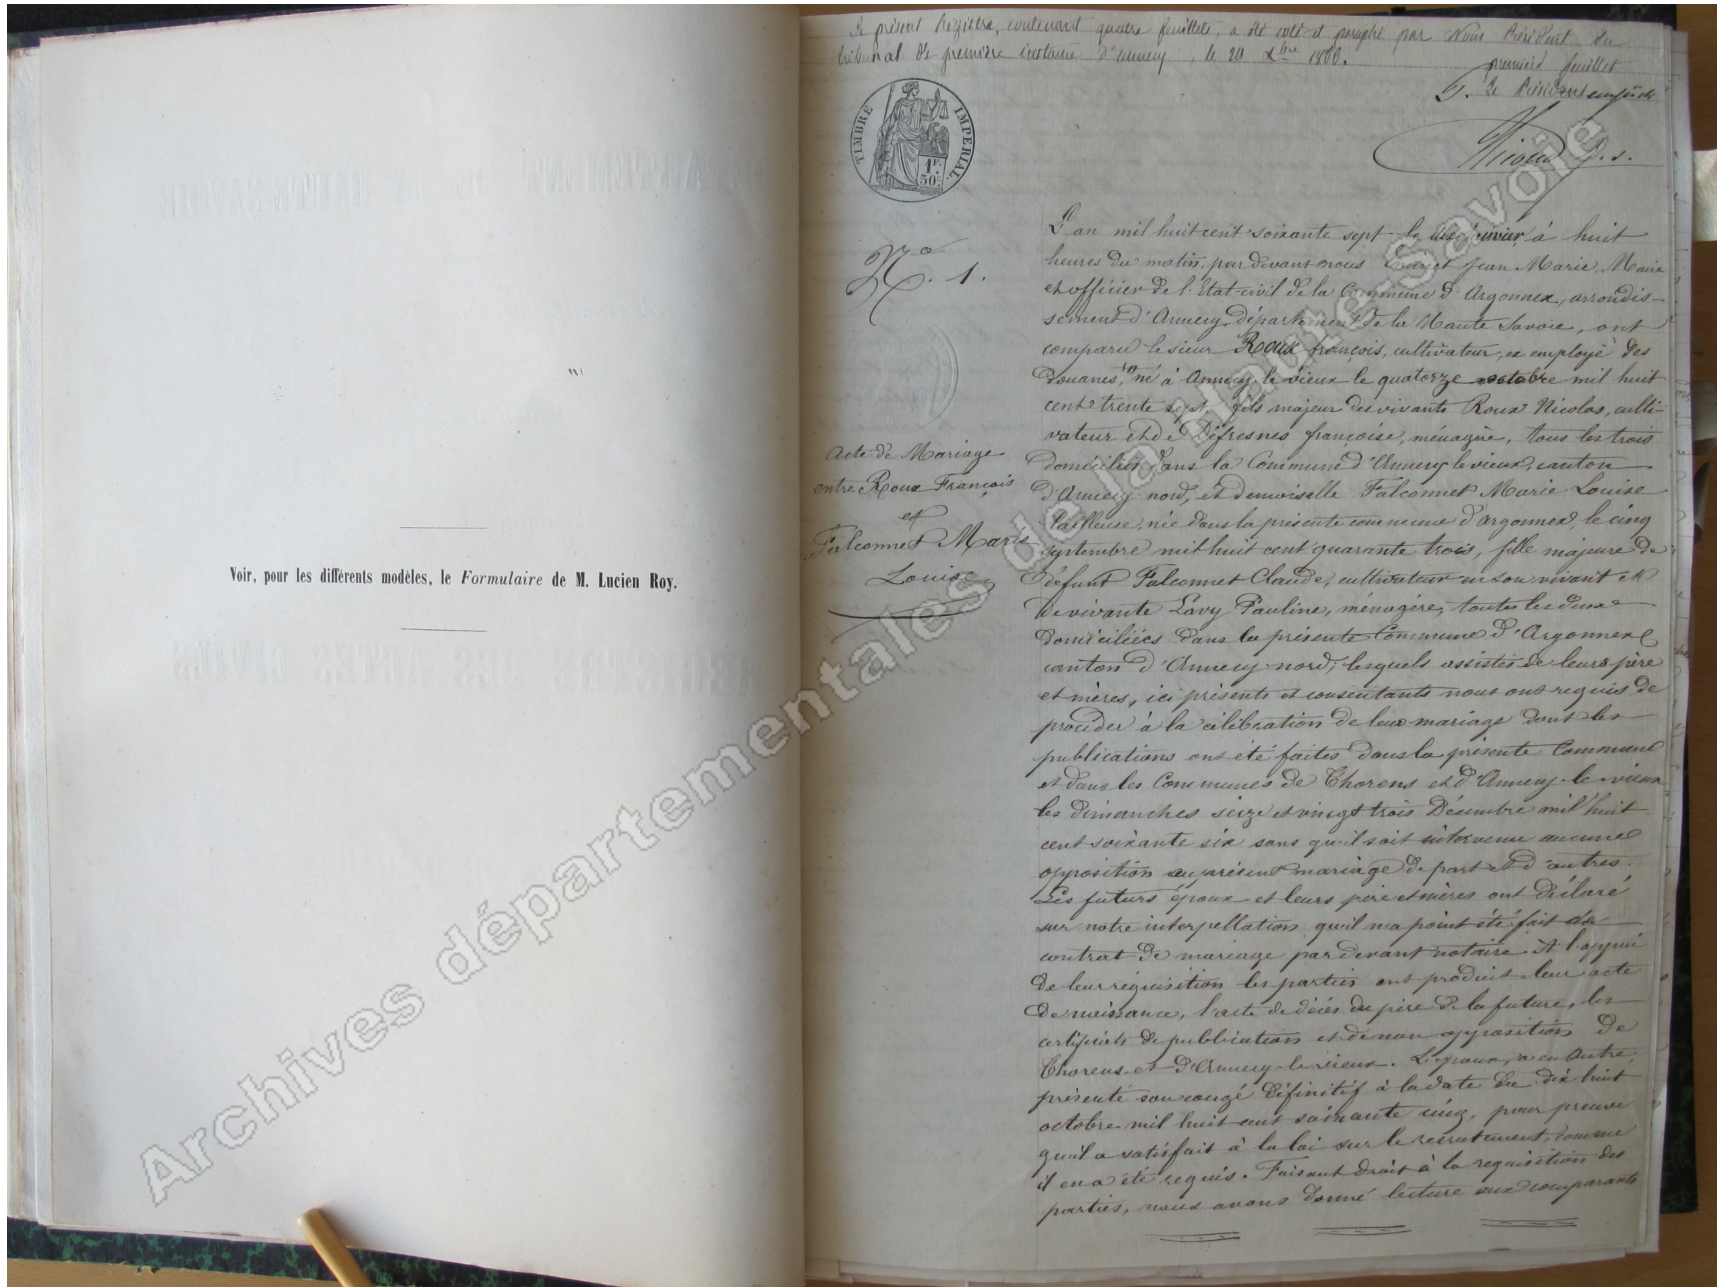 Voir, pour les différents modèles, le Formulaire de M. Lucien Roy.
Le présent Registre, contenant quatre feuillets, a été coté et paraphé par Nous Président du
tribunal de première instance d'annecy, le 20 Xbre 1866.
premier feuillet
Le Président
TIMBRE IMPERIAL
1F.
50c.
No. 1.
Acte de Mariage
entre Roux François
et
Falconnet Marie
Louise
L'an mil huit cent soixante sept le janvier à huit
heures du matin, par devant nous Jean Marie, Maire
et officier de l'Etat-civil de la Commune d'Argonnex, arrondis-
sement d'Annecy, département de la Haute Savoie, ont
comparu le sieur Roux françois, cultivateur, ex employé des
douanes, né à Annecy-le-vieux le quatorze octobre mil huit
cent trente sept, fils majeur des vivants Roux Nicolas, culti-
vateur et de Défresnes françoise, ménagère, tous les trois
domiciliés dans la Commune d'Annecy le vieux, canton
d'Annecy nord, et demoiselle Falconnet Marie Louise
tailleuse, née dans la présente commune d'argonnex, le cinq
septembre mil huit cent quarante trois, fille majeure de
défunt Falconnet Claude, cultivateur en son vivant et
de vivante Lavy Pauline, ménagère, toutes les deux
domiciliées dans la présente Commune d'Argonnex
canton d'Annecy-nord; lesquels assistés de leurs père
et mères, ici présents et consentants nous ont requis de
procéder à la célébration de leur mariage dont les
publications ont été faites dans la présente Commune
et dans les Communes de Thorens et d'Annecy-le-vieux
les dimanches seize et vingt trois Décembre mil huit
cent soixante six sans qu'il soit intervenu aucune
opposition au présent mariage de part et d'autres.
Les futurs époux et leurs père et mères ont déclaré
sur notre interpellation qu'il n'a point été fait de
contrat de mariage par devant notaire. A l'appui
de leur réquisition les parties ont produit leur acte
de naissance, l'acte de décès du père de la future, les
certificats de publication et de non opposition de
Thorens et d'Annecy-le-vieux. L'époux, a en outre,
présenté son congé définitif à la date du dix huit
octobre mil huit cent soixante cinq, pour preuve
qu'il a satisfait à la loi sur le recrutement, comme
il en a été requis. Faisant droit à la requisition des
parties, nous avons donné lecture aux comparants
Archives départementales de la Haute-Savoie